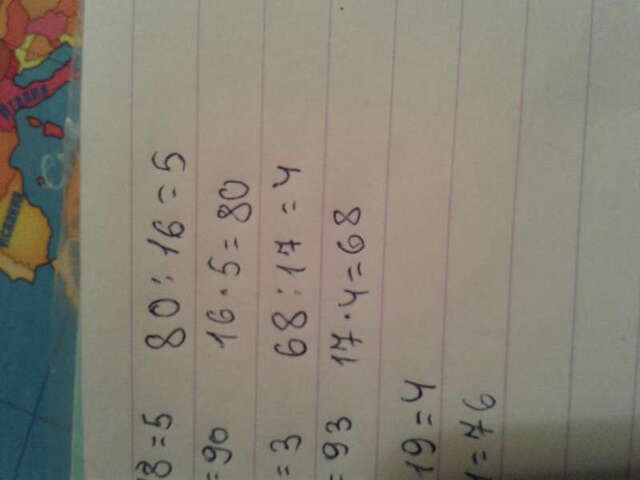 8=5 80:16=5
=90 16·5=80
=3 68:17=4
=93 17·4=68
19=4
=76